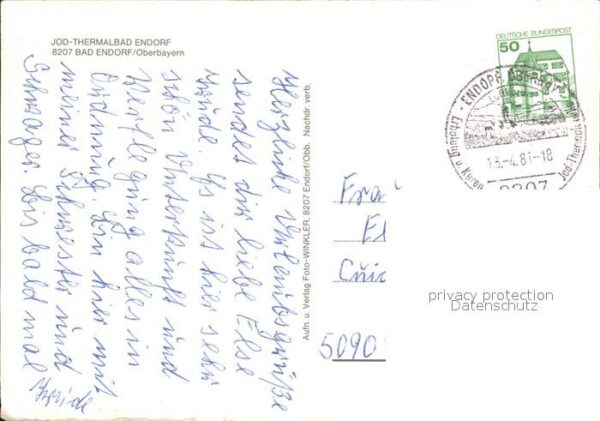 JOD-THERMALBAD ENDORF
8207 BAD ENDORF/Oberbayern
Herzliche Urlaubsgrüße
sendet dir liebe Else
Frieda. Es ist hier sehr
schön Unterkunft und
Verpflegung alles in
Ordnung. Bin hier mit
meiner Schwester und
Schwager. Bis bald mal
Frieda
Aufn. u. Verlag Foto-WINKLER, 8207 Endorf/Obb. Nachdr. verb.
DEUTSCHE BUNDESPOST
50
ENDORF, OBERBAY
Erholung u. Kuren
Jod-Thermal
13.-4.81-18
8207
Fra
El
5090
privacy protection
Datenschutz